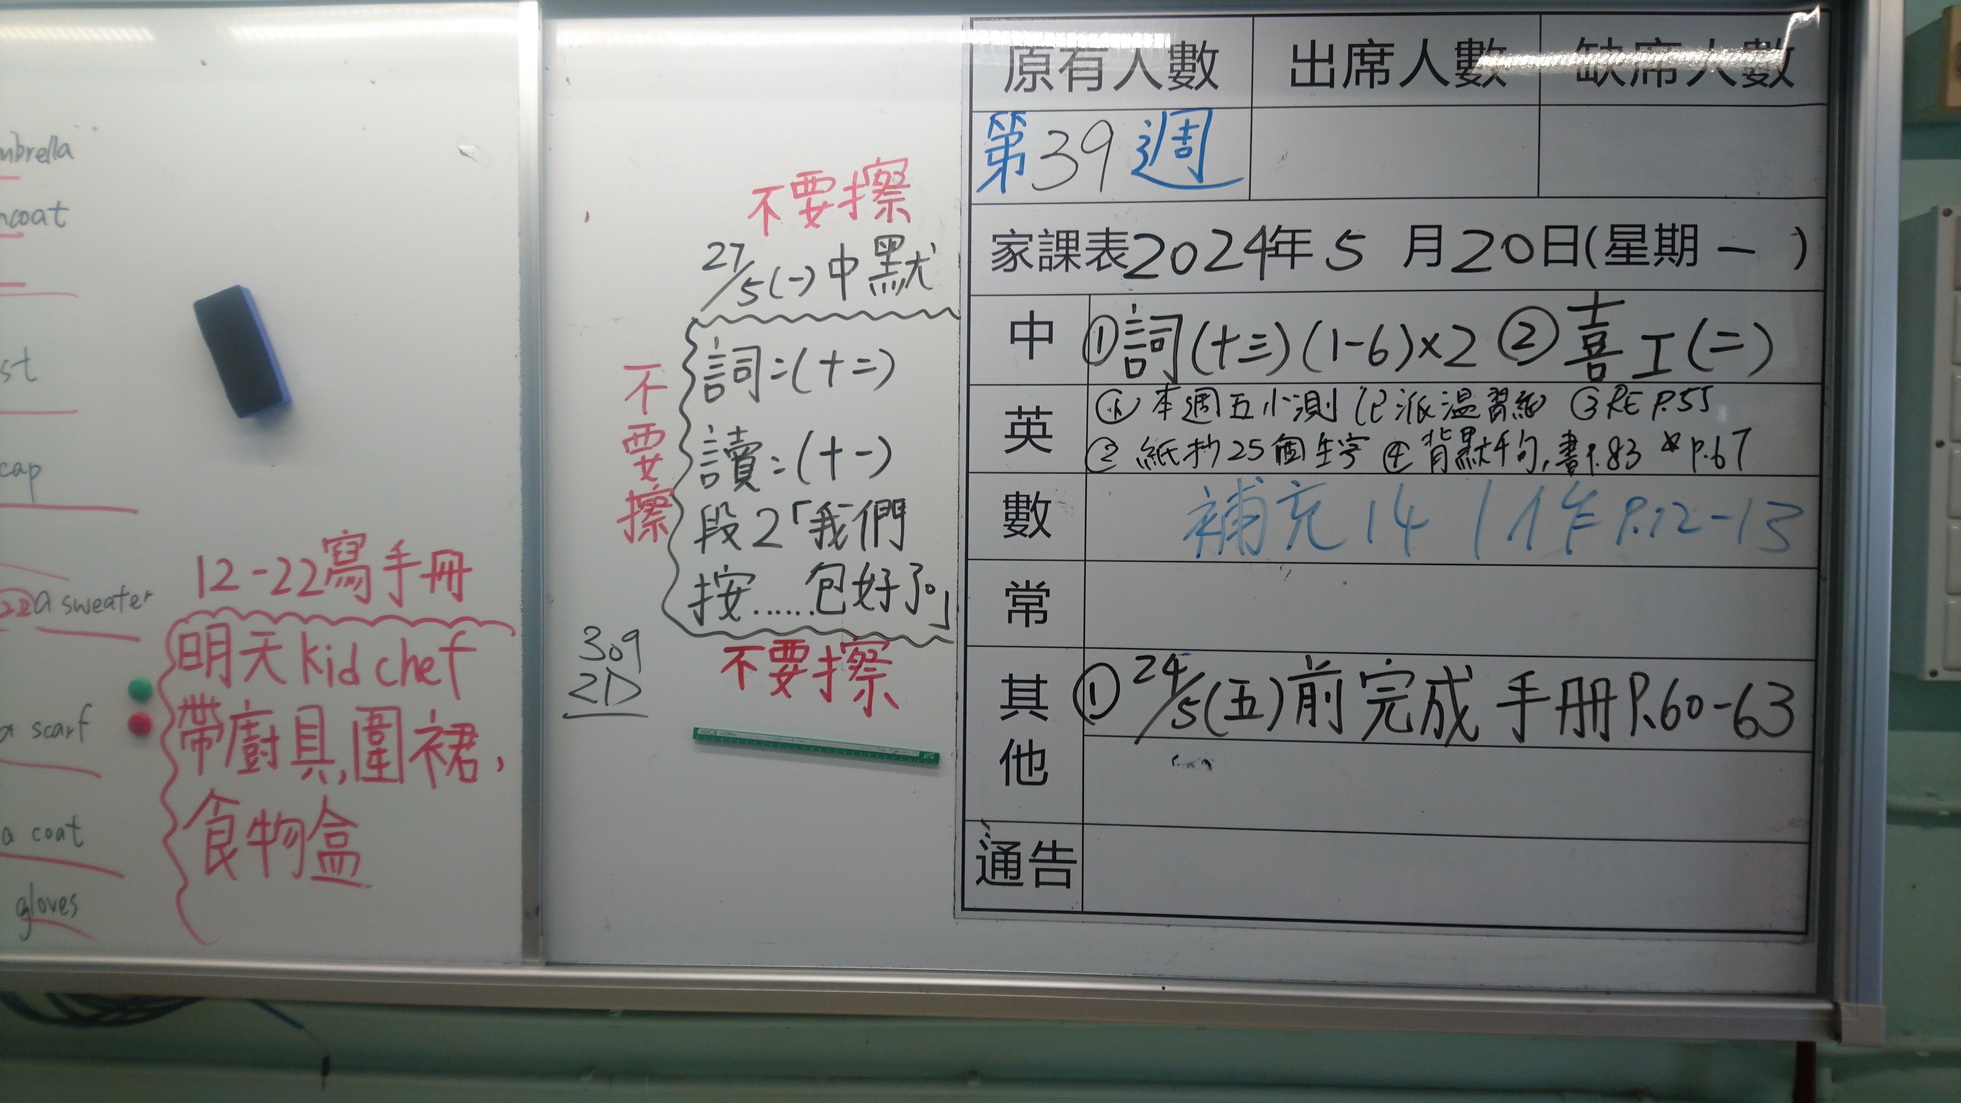 a sweater
a scarf
a coat
gloves
cap
12-22寫手冊
明天kid chef
帶廚具,圍裙,
食物盒
不要擦
27/5(一)中默
詞:(十二)
讀:(十一)
段2「我們
按……包好了。」
不要擦
不要擦
309
2D
原有人數 出席人數 缺席人數
第39週
家課表2024年5月20日(星期一)
中 ①詞(十三)(1-6)×2 ②喜工(二)
英 ① 本週五小測 (已派溫習紙) ③RE P.55
② 紙抄25個生字 ④背默句,書P.83 * P.67
數 補充14 | 作P.12-13
常
其他 ① 24/5(五)前完成手冊P.60-63
通告